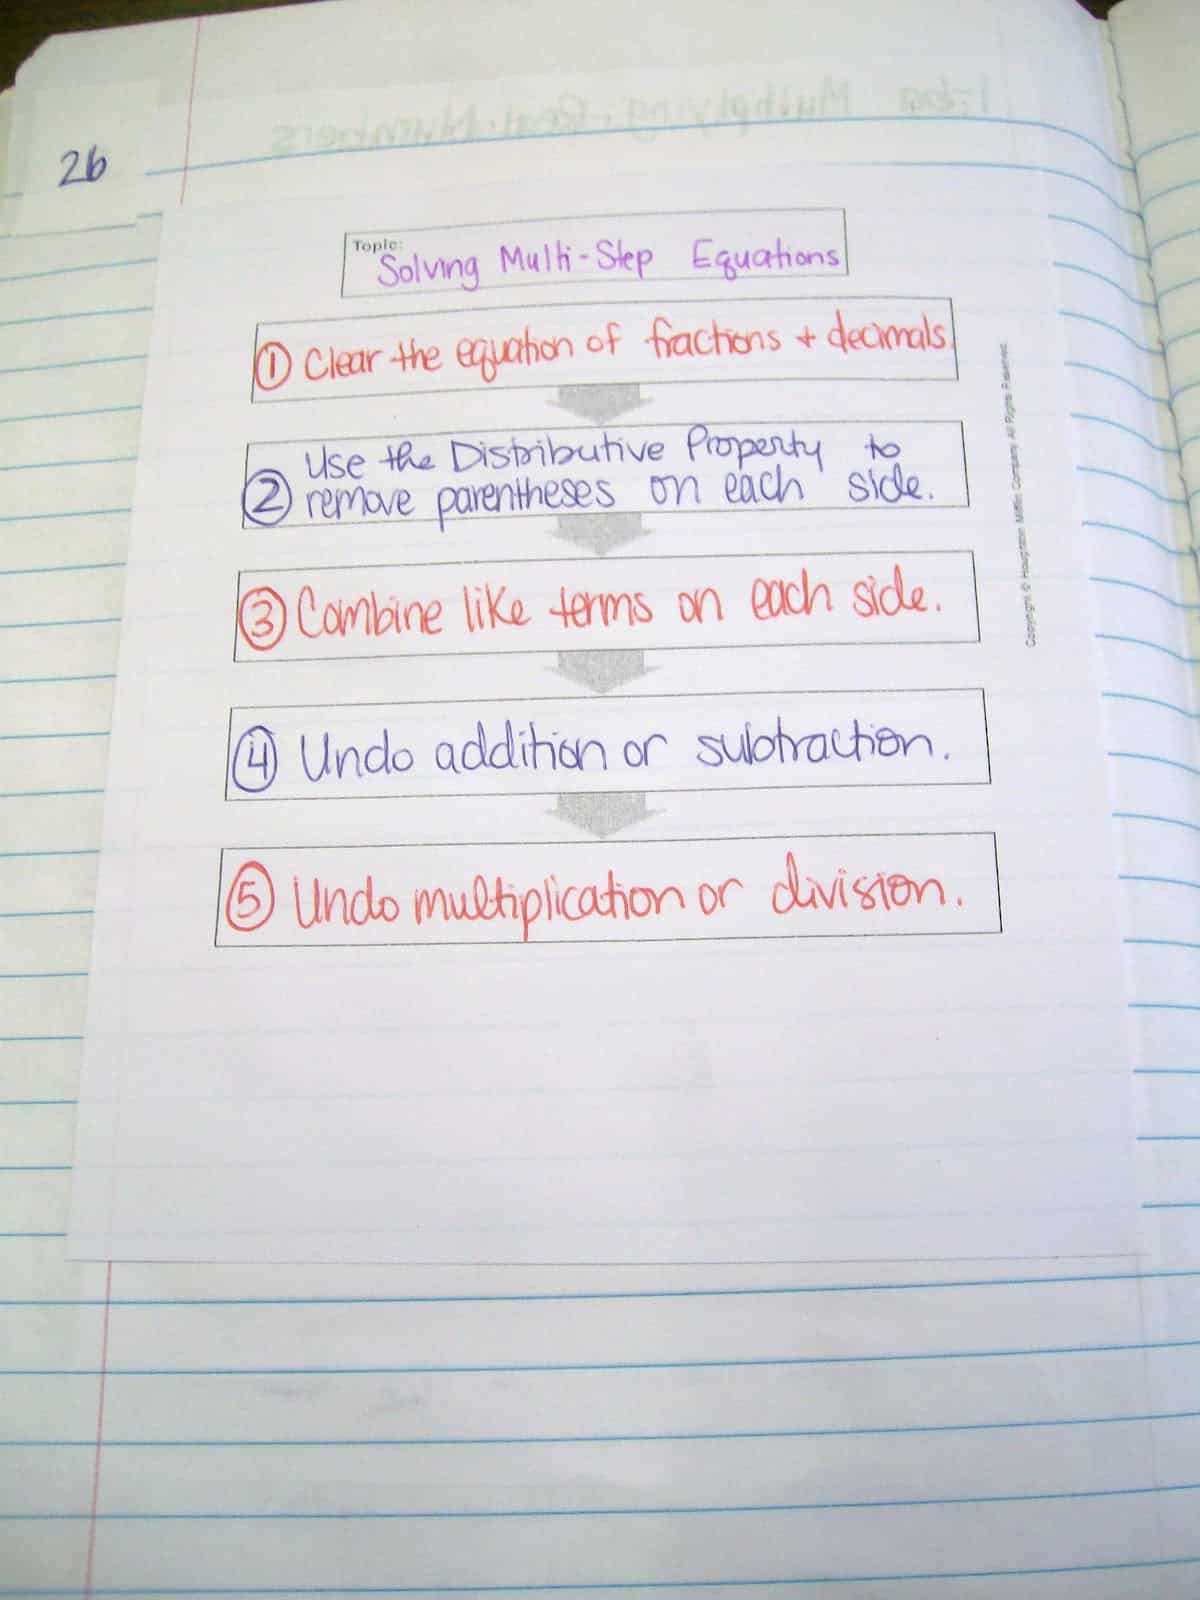 1-6a Multiplying Real Numbers
26
Topic:
Solving Multi-Step Equations
① Clear the equation of fractions + decimals.
Use the Distributive Property to
② remove parentheses on each side.
③ Combine like terms on each side.
④ Undo addition or subtraction.
⑤ Undo multiplication or division.
Copyright © Houghton Mifflin Company. All Rights Reserved.